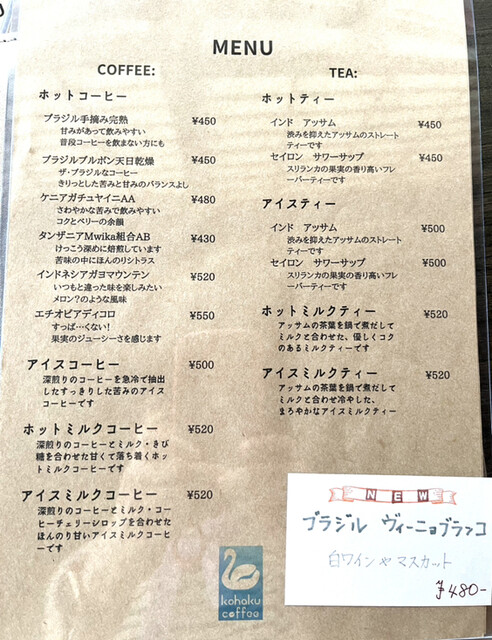 MENU
COFFEE:
ホットコーヒー
ブラジル手摘み完熟 ¥450
甘みがあって飲みやすい
普段コーヒーを飲まない方にも
ブラジルブルボン天日乾燥 ¥450
ザ・ブラジルなコーヒー
きりっとした苦みと甘みのバランスよし
ケニアガチュヤイニAA ¥480
さわやかな苦みで飲みやすい
コクとベリーの余韻
タンザニアMwika組合AB ¥430
けっこう深めに焙煎しています
苦味の中にほんのりシトラス
インドネシアガヨマウンテン ¥520
いつもと違った味を楽しみたい
メロン?のような風味
エチオピアディコロ ¥550
すっぱ…くない!
果実のジューシーさを感じます
アイスコーヒー ¥500
深煎りのコーヒーを急冷で抽出
したすっきりした苦みのアイス
コーヒーです
ホットミルクコーヒー ¥520
深煎りのコーヒーとミルク・きび
糖を合わせた甘くて落ち着くホッ
トミルクコーヒーです
アイスミルクコーヒー ¥520
深煎りのコーヒーとミルク・コー
ヒーチェリーシロップを合わせた
ほんのり甘いアイスミルクコーヒ
ーです
TEA:
ホットティー
インド アッサム ¥450
渋みを抑えたアッサムのストレート
ティーです
セイロン サワーサップ ¥450
スリランカの果実の香り高いフレ
ーバーティーです
アイスティー
インド アッサム ¥500
渋みを抑えたアッサムのストレート
ティーです
セイロン サワーサップ ¥500
スリランカの果実の香り高いフレ
ーバーティーです
ホットミルクティー ¥520
アッサムの茶葉を鍋で煮だして
ミルクと合わせた、優しくコク
のあるミルクティーです
アイスミルクティー ¥520
アッサムの茶葉を鍋で煮だして
ミルクと合わせ冷やした、
まろやかなアイスミルクティー
NEW
ブラジル ヴィーニョブランコ
白ワインやマスカット
¥480-
kohaku
coffee